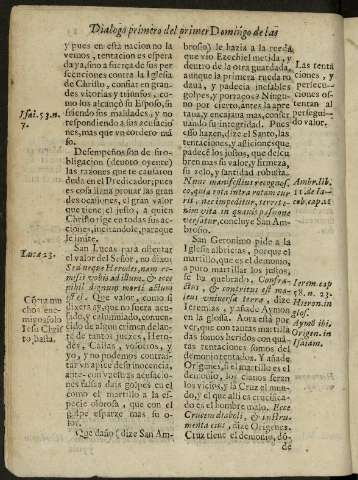 Dialogo primero del primer Domingo de las
y pues en esta nacion no la
vemos, tentacion es espera
da ya, sino a fuerça de sus per
secuciones contra la Iglesia
de Christo, confiar en gran
des vitorias y triunfos, co-
mo los alcançò su Esposo, su
friendo sus maldades, y no
respondiendo a sus acusacio
nes, mas que vn cordero ma
so.
Isai. 53. n.
7.
Desempeñosson de su o-
bligacion (deuoto oyente)
las razones que te cautaron
duda en el Predicador; pues
es cosa llana prouar las gran
des ocasiones, el gran valor
que tiene el justo, a quien
Christo rige en todas sus ac-
ciones, incitandole, para que
le imite.
San Lucas para ostentar
el valor del Señor, no dixo:
Sed neque Herodes, nam re-
misit vobis ad illum, & ecce
nihil dignum morte actum
est ei. Que valor, como si
Lucæ 23.
fuera, y que no fuera acu-
sado, y calumniado, conuen-
cido de algun crimen delan-
te de tantos juezes, Hero-
des, Caifas, vosotros, y
yo, y no podemos contrair
Cõtra mu
chos ene-
migos solo
Iesu Chris
to basta.
var vn apice de su inocencia,
ante con vuestras acusacio-
nes falsas dais golpes en el
como el martillo a la es-
pecie olorosa, que con el
golpe esparze mas su o-
lor.
Que daño (dize San Am-
brosio) le hazia a la rueda,
que vio Ezechiel metida, y
dentro de la otra guardada,
aunque la primera rueda ro
daua, y padecia inefables
golpes, y porrazos? Ningu-
no por cierto, antes la apre
taua, y encaxaua mas, conser
uando su integridad. Pues
esso hazen, dize el Santo, las
tentaciones, y aflicciones que
padecẽ los justos, que descu-
bren mas su valor, y firmeza,
su zelo, y santidad robusta.
Las tenta
ciones, y
persecu-
ciones os-
tentan al
persegui-
do valor.
concluye San Am-
brosio.
Ambr. lib.
San Geronimo pide a la
Iglesia albricias, porque el
martillo, que es el demonio,
a puro martillar los justos,
se ha quebrado. Confra-
ctus, & contritus est ma-
leus vniuersæ terræ, dize
Ieremias, y añade Aymon
en la glosa. Aora està por
ver, que con tantas martilla
das somos heridos con quã-
tas tentaciones somos del
demonio tentados. Y añade
Origenes, si el martillo es el
demonio, los clauos seran
los vicios, y la Cruz el mun-
do, y el que alli es crucifica-
do es el hombre malo. Ecce
Crucem diaboli, & instru-
menta eius, dize Origenes.
Cruz tiene el demonio, dõ-
Ierem. cap
Hieron. in
glos.
Aymõ ibi.
Origen. in
Isaiam.
de